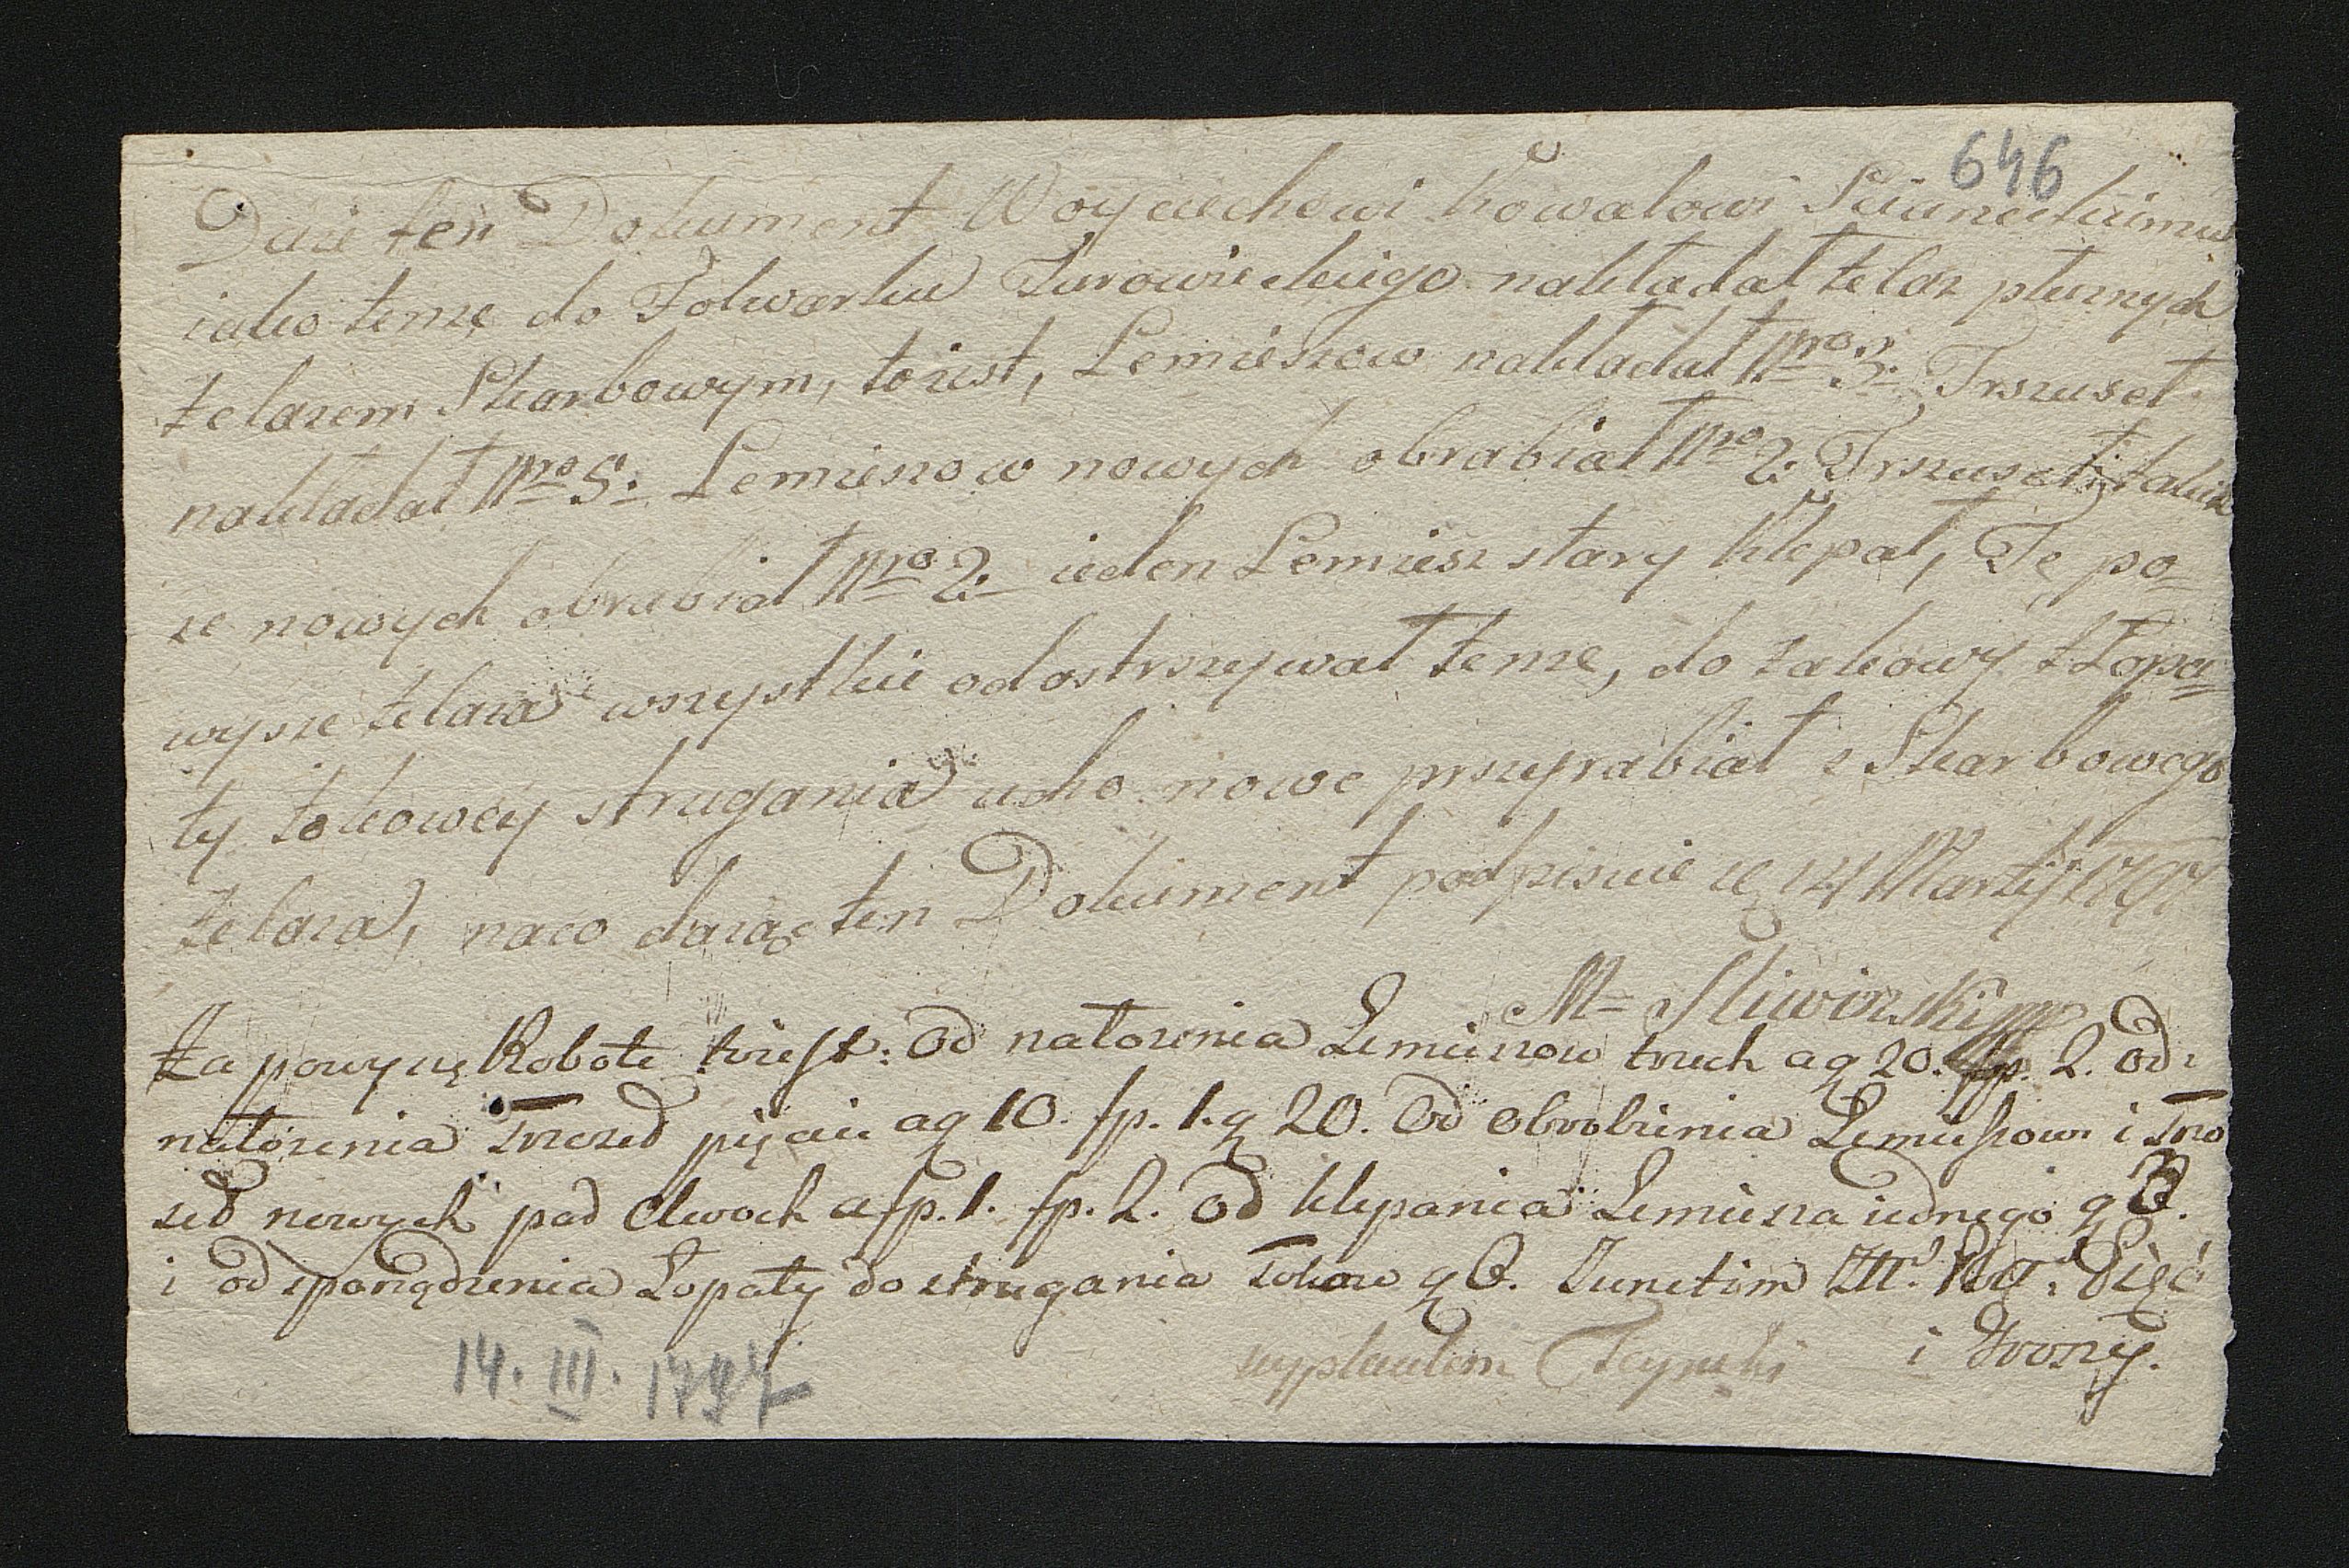 646
Daie ten Dokument Woyciechowi Kowalowi
iako temze do Folwarku Turowieckiego nakładał żelaz płużnych
żelazem Skarbowym, toiest, Lemieszow nakładał Nro 3: Trszuseł
nakładał Nro 5: Lemieszow nowych obrabiał Nro 2: Trszuseł także
ze nowych obrabiał Nro 2: ieden Lemiesz stary klepał, Te po=
wysze żelaza wszystkie odostrszywał temze, do Łopa=
ty tokowey strugania ucho nowe przyrabiał z Skarbowego
żelaza, naco daiąc ten Dokument podpisuie się 14 Martij 1797
M= Sliwinski mp
Za powyszę Robote toiest: Od nałozenia Lemieszow trzech a g 20. fp. 2. Od
nałożenia Trzeseł pięciu a g 10. fp. 1. g 20. Od obrobienia Lemieszow i Trzo
seł nowych pod dwoch a fp. 1. fp. 2. Od klepania Lemiesza iednego g
i od sporządzenia Łopaty do strugania Tokow g Junctim Pięć
i Groszy.
wypłaciłem
14. III. 1797